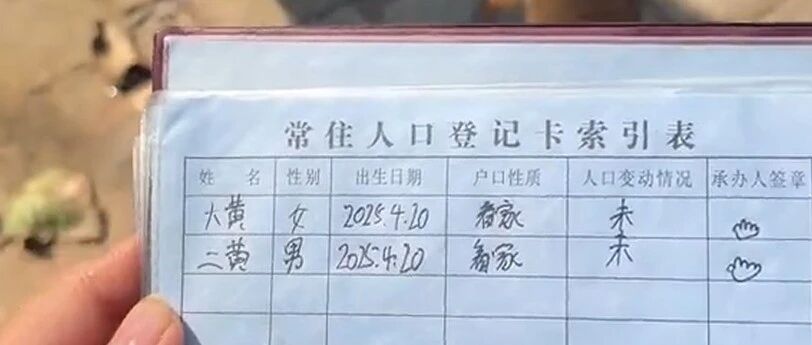 常住人口登记卡索引表
姓 名 性别 出生日期 户口性质 人口变动情况 承办人签章
大黄 女 2025.4.20 看家 未
二黄 男 2025.4.20 看家 未